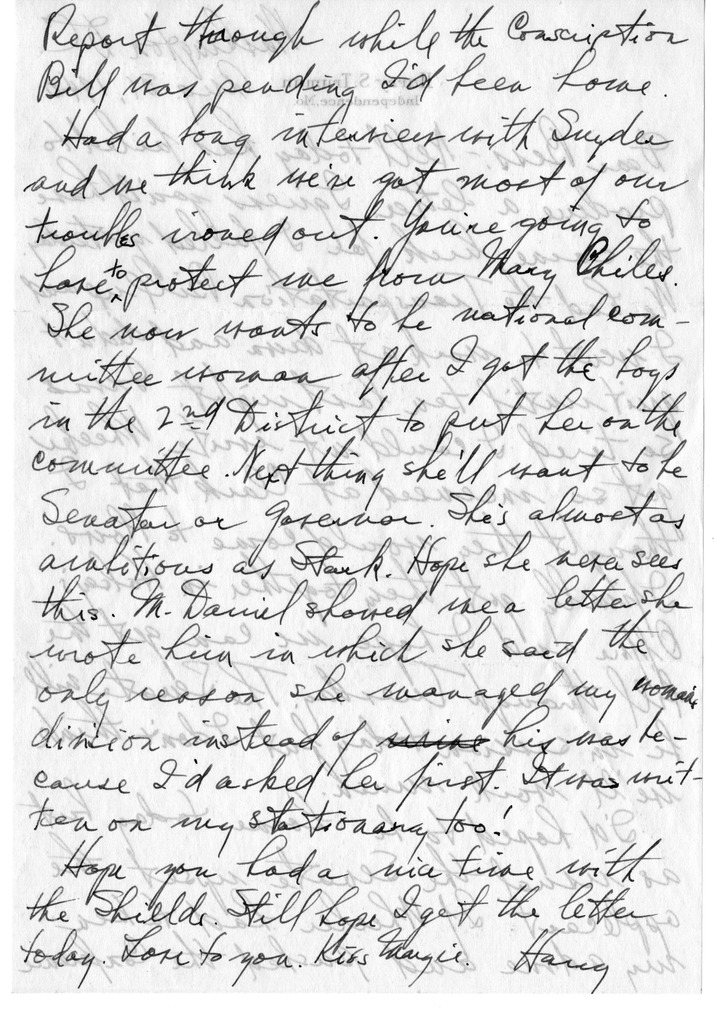 Report through while the Conscription
Bill was pending I'd been home.
Had a long interview with Snyder
and we think we've got most of our
troubles ironed out. You're going to
have to protect me from Mary Chiles.
She now wants to be national com-
mittee woman after I got the boys
in the 2nd District to put her on the
committee. Next thing she'll want to be
Senator or governor. She's almost as
ambitious as Stark. Hope she never sees
this. McDaniel showed me a letter she
wrote him in which she said the
only reason she managed my womans
division instead of his was be-
cause I'd asked her first. It was writ-
ten on my stationary too!
Hope you had a nice time with
the Shields. Still hope I get the letter
today. Love to you. Kiss Margie. Harry